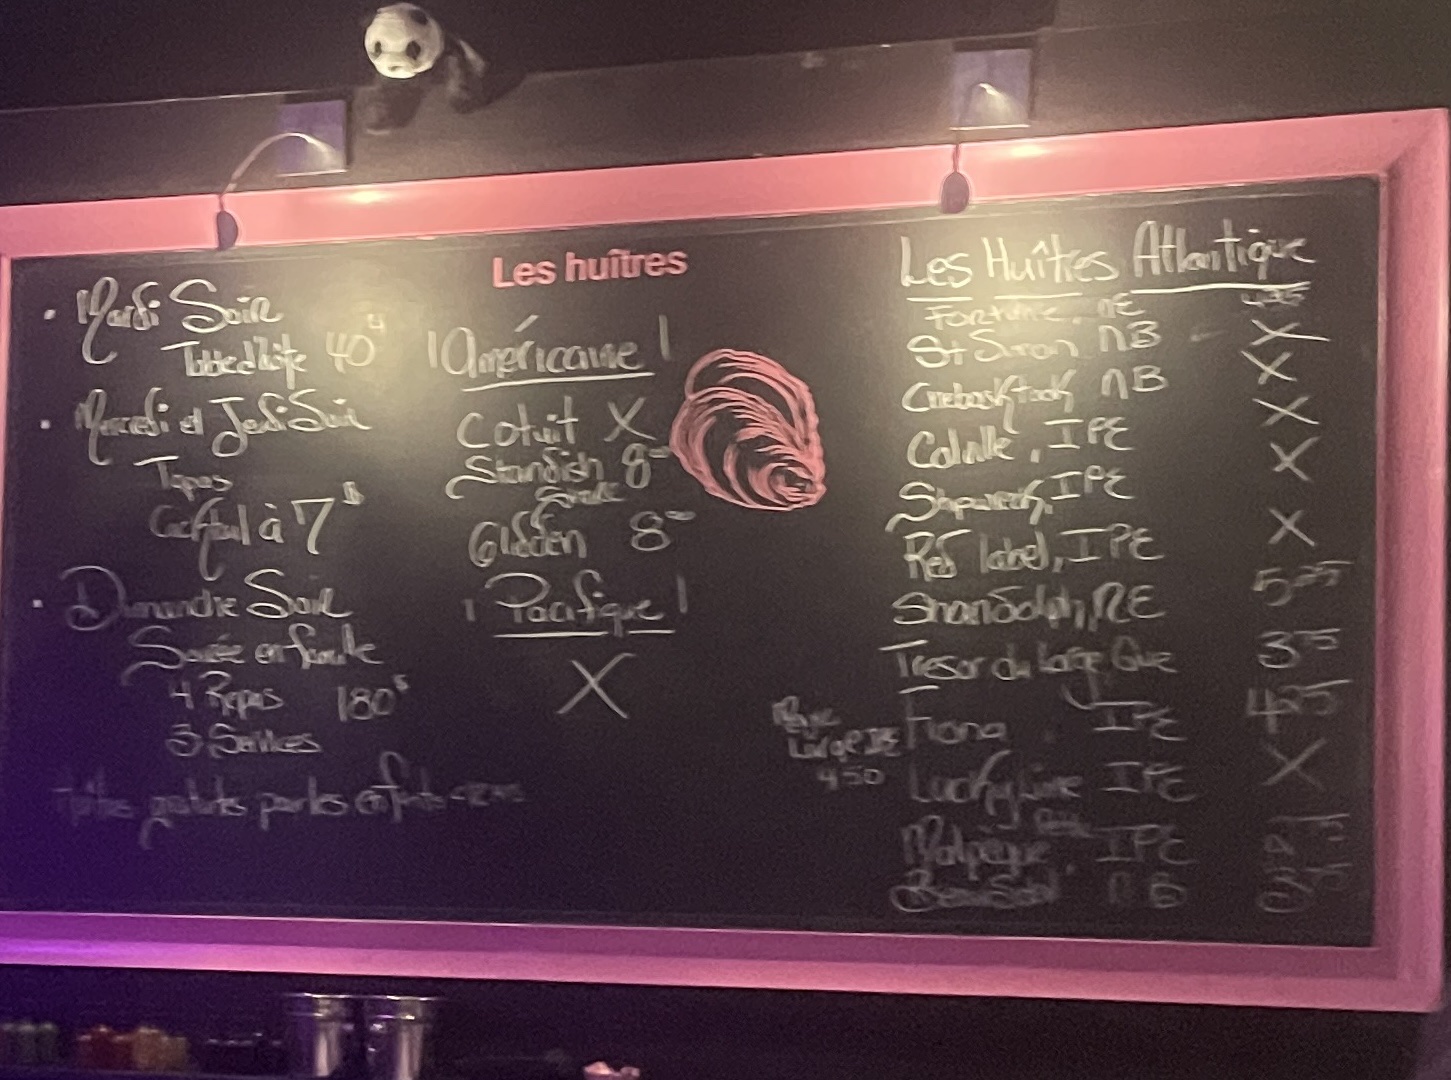 Les huîtres
· Mardi Soir
Table d'hôte 40$
· Mercredi et Jeudi Soir
Tapas
Cocktail à 7$
· Dimanche Soir
Soirée en famille
4 Repas 180$
3 Services
gratuites pour les enfants
Américaine
Cotuit X
Standish 8
Glidden 8
Pacifique
X
Les Huîtres Atlantique
Fortune, NE
St Simon NB X
NB X
Colville, IPE X
Shipwreck, IPE X
Red label, IPE X
Shandolph, NE 5 25
Tresor du large Que 3 75
Fiona, IPE 4 25
Large IPE
4 50
Lucky Lime IPE X
Malpèque, IPE
Beausoleil NB